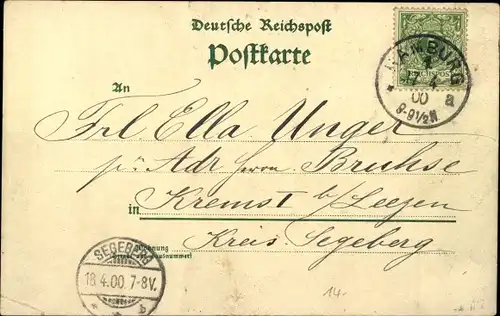 Deutsche Reichspost
Postkarte
HAMBURG
1
17.4.
00
8-9½N
a
An
Frl. Ella Unger
pr. Adr. Herrn Bruhse
in Krems I b/Leezen
Kreis Segeberg
Wohnung
SEGEBERG
18.4.00.7-8V.
* * b
14.-